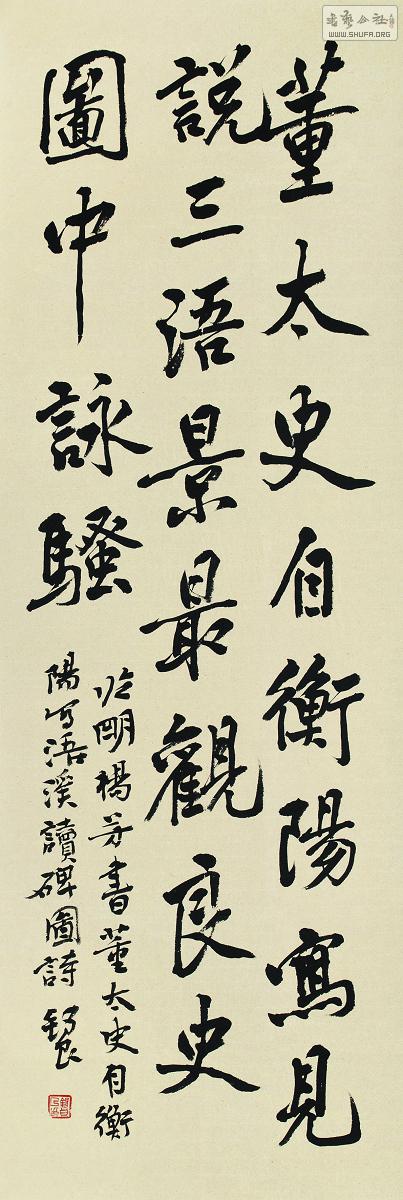 董太史自衡陽寫見
說三語景最觀良史
圖中詠騷
臨明楊芳書董太史自衡
陽寫浯溪讀碑圖詩
WWW.SHUFA.ORG